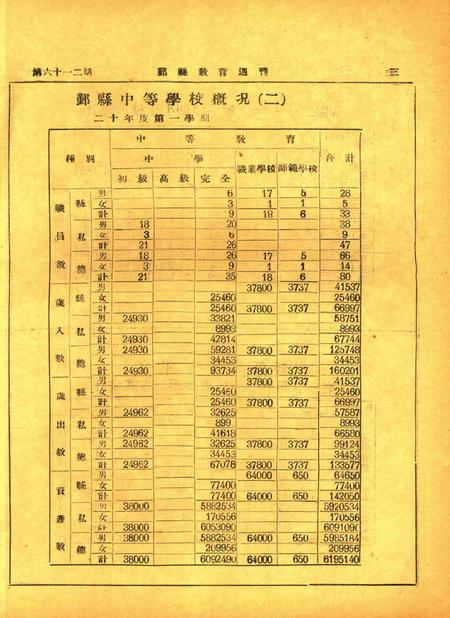 第六十一二期 鄞縣教育週刊 三
鄞縣中等學校概況(二)
二十年度第一學期
種別 中等教育 合計
中學 職業學校 師範學校
初級 高級 完全
職員數 縣 男 6 17 5 28
女 3 1 1 5
計 9 18 6 33
私 男 18 20 38
女 3 6 9
計 21 26 47
總 男 18 26 17 5 66
女 3 9 1 1 14
計 21 35 18 6 80
歲入數 縣 男 37800 3737 41537
女 25460 25460
計 25460 37800 3737 66997
私 男 24930 33821 58751
女 8993 8993
計 24930 42814 67744
總 男 24930 59281 37800 3737 125748
女 34453 34453
計 24930 93734 37800 3737 160201
歲出數 縣 男 37800 3737 41537
女 25460 25460
計 25460 37800 3737 66997
私 男 24962 32625 57587
女 899 8993
計 24962 41618 66580
總 男 24962 32625 37800 3737 99124
女 34453 34453
計 24962 67078 37800 3737 133577
資產數 縣 男 64000 650 64650
女 77400 77400
計 77400 64000 650 142050
私 男 38000 5882534 5920534
女 170556 170556
計 38000 6053090 6091090
總 男 38000 5882534 64000 650 5985184
女 209956 209956
計 38000 6092490 64000 650 6195140